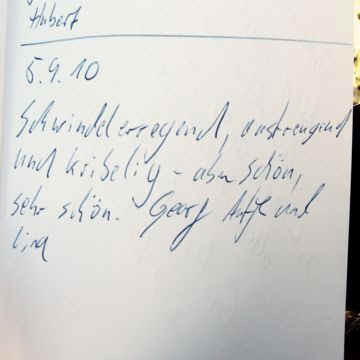 Hubert
5.9.10
Schwindelerregend, anstrengend
und kribelig - aber schön,
sehr schön. Georg Antje und
Lina